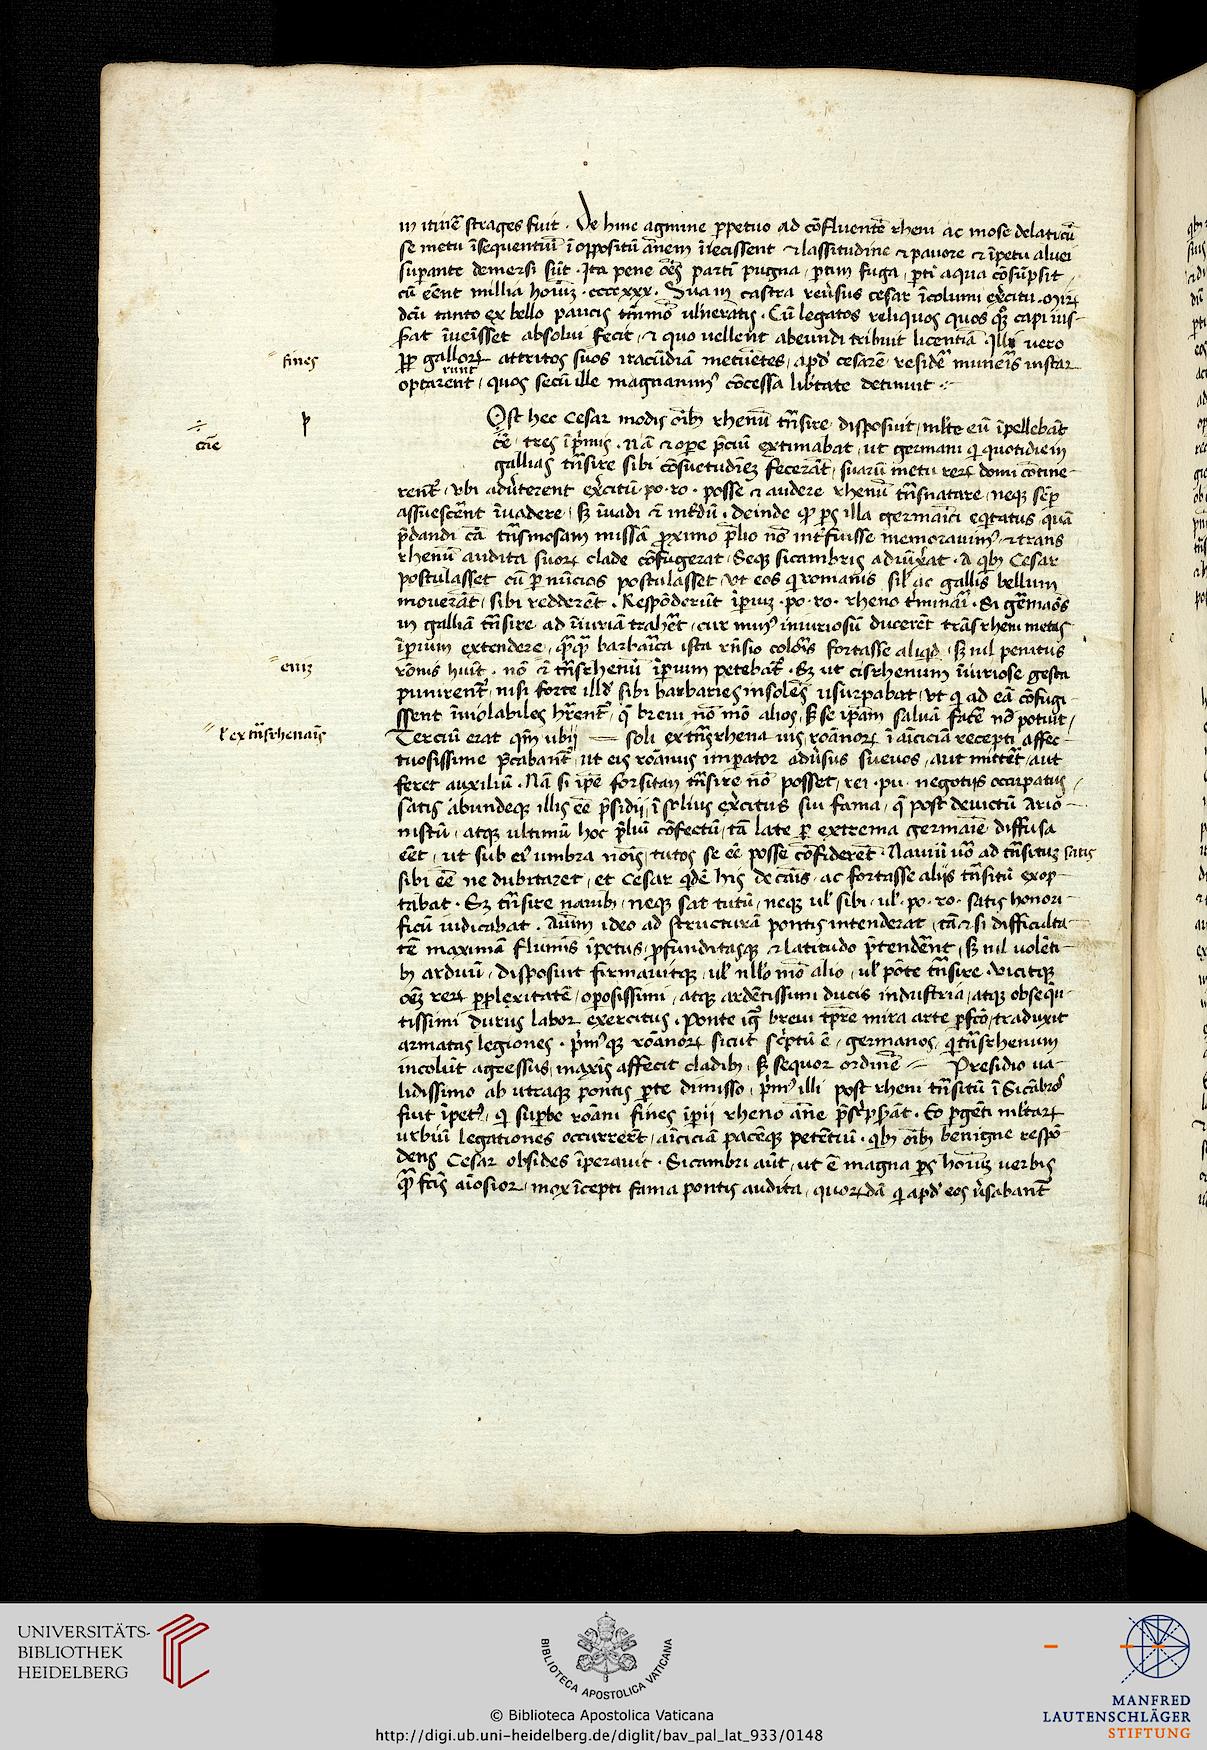 in itinē strages fuit . De hinc agmine ꝑpetuo ad cōfluentē rheni ac mose delati cū
se metu īsequentiū ī oppositū āmnem īiecissent ⁊ lassitudine ⁊ pauore ⁊ īpetu aluei
suꝑante demersi sūt . Ita pene oēs partī pugna , ꝑtim fuga , ꝑti aqua cōsūpsit ,
cū eēnt millia hoīuꝫ . ccccxxx . Sua in castra reuersus cesar īcolumi exercitu .
dcū tanto ex bello paucis tm̄mō ulneratis . Cū legatos reliquos quos capi ius-
ꝑat īueisset absolui fecit , ⁊ quo uellent abeundi tribuit licentiā uero
fines
gallorꝝ attritos suos iracūdiā metuētes , apd cesarē residē muneris instar
runt
optarent , quos secū ille magnanimꝰ cōcessa libtate detinuit .
p
Ost hec Cesar modis oībꝫ rhenū trn̄sire disposuit , mlte eū īpellebāt
cāe
cē , tres īpimis . Nā ⁊ oꝑe pciū extimabat , ut germani qi quotidie in
gallias trn̄sire sibi cōsuetudinē fecerāt , suarū metu rerꝝ domi cōtine-
rentꝰ , vbi aduterent exercitū . po . ro . posse ⁊ audere rhenū trn̄snatare , neqꝫ sēꝑ
assuescent īuadere , sꝫ īuadi ⁊ intdū . deinde ꝙ ꝑs illa germaīci eqitatus quā
pdandi cā trn̄smosam missā ꝓximo plio nō intfuisse memorauimꝰ ⁊ trans
rhenū audita suorꝝ clade cōfugerat , seqꝫ sicambris adiūxat . a qbꝫ Cesar
postulasset cū ꝑ nūcios postulasset , ut eos qi romanis sil ac gallis bellum
mouerāt , sibi redderēt . Respōderūt īꝑiuꝫ . po . ro . rheno tminari . Si gemaōs
in galliā trn̄sire ad īiuriā trahet , cur miꝰ iniuriosū ducerēt trāsrheni metas
īꝑium extendere , barbarica ista rn̄sio coloris fortasse aliqd , sꝫ nil penitus
eiuꝫ
rōnis huit . nō ⁊ trn̄srhenū īꝑium petebat . Sꝫ ut cisrhenum īiuriose gesta
punirentꝰ , nisi forte illd sibi barbaries insolēs usurpabat , ut qi ad eā cōfugi-
ssent īuiolabiles hrentꝰ , q breui nō mō alios , sꝫ se ipam saluā facē nō potuit ,
l extrn̄srhenaīs
Tercuū erat qm ubij — soli extrn̄srhena uis roānorꝝ ī aīciciā recepti affec-
tuosissime pcabantꝰ , ut eis roānus imꝑator aduersus sueuos , aut mittet , aut
feret auxiliū . Nā si ipē forsitan trn̄sire nō posset , rei . pu . negotijs occupatus ,
satis abundeqꝫ illis eē psidij ī solius exercitus sui fama , q post deuictū Ario-
nistū , atqꝫ ultimū hoc pliū cōfectū , tā late ꝑ extrema germaīe diffusa
eēt , ut sub eiꝰ umbra noīs , tutos se eē posse cōfiderēt . Nauiū uō ad trn̄situꝫ satis
sibi eē ne dubitaret , et Cesar qdē his de cāis , ac fortasse alijs trn̄situ exop-
tabat . Sꝫ trn̄sire nauibꝫ , neqꝫ sat tutū , neqꝫ ul sibi , ul . po . ro . satis honori-
ficū iudicabat . Aīum ideo ad structurā pontis intenderat , tā ⁊ si difficulta-
tē maximā fluminis īpetus , ꝓfunditasqꝫ ⁊ latitudo ptendeīnt , sꝫ nil uolēti-
bꝫ arduū , disposuit firmauitqꝫ , ul nllo mō alio , ul pōte trn̄sire . vicitqꝫ
oēꝫ rerꝝ ꝑplexitatē , oposissimi , atqꝫ ardētissimi ducis industria , atqꝫ obsequ-
tissimi durus labor exercitus . Ponte igꝰ breui tꝑre mira arte ꝑfcō , traduxit
armatas legiones . pmꝰqꝫ roānorꝝ sicut scptū ē , germanos , qi trn̄srhenum
incolūt agressus , maxīs affecit cladibꝫ , sꝫ sequor ordinē — Presidio ua-
lidissimo ab utraqꝫ pontis ꝑte dimisso , pmꝰ illi post rheni trn̄situ ī Sicābros
fuit īpetꝰ , qi suꝑbe roāni fines īꝑii rheno āne pscpserāt . Eo ꝑgēti mltarꝝ
urbiū legationes occurrerēt , aīciciā pacēqꝫ petētiū . qbꝫ oībꝫ benigne respō-
dens Cesar obsides īperauit . Sicambri aūt , ut ē magna ꝑs hoīuꝫ uerbis
ꝙ fcis aīosior , mox īcepti fama pontis audita , quorꝝdā qi apd eos usabantꝰ
UNIVERSITÄTS-
BIBLIOTHEK
HEIDELBERG
BIBLIOTECA APOSTOLICA VATICANA
© Biblioteca Apostolica Vaticana
http://digi.ub.uni-heidelberg.de/diglit/bav_pal_lat_933/0148
MANFRED
LAUTENSCHLÄGER
STIFTUNG